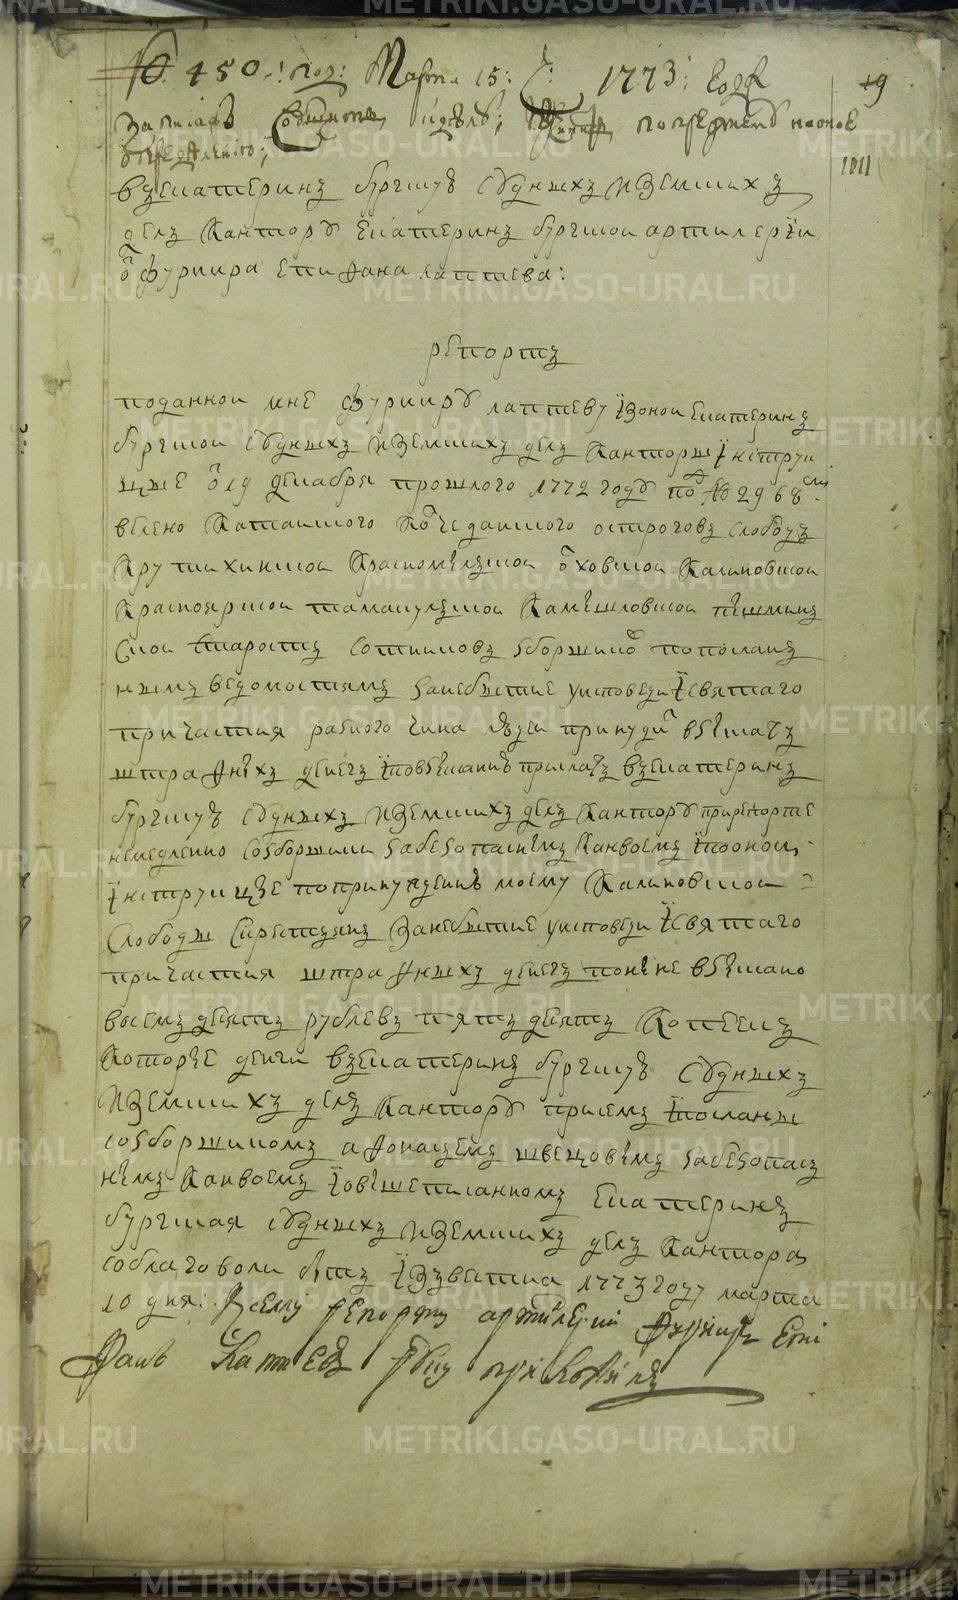 № 450: под: Марта 15: Ч: 1773: года
19
записав сообщить к делу;
1011
в екатеринбургскую судных и земских
дел кантору екатеринбургской артилерии
от фуриира епифана лаптева:
репорт
по данной мне фуриру лаптеву из оной екатерин
бургской судных и земских дел канторы инструк
цые от 19 декабря прошлого 1772 году под № 2968м
велено катайского колчеданского острогов слобод
крутихинской красномыской ольховской калиновской
красноярской тамакулской камышловской пышмин
ской старост сотников зборщиков по послан
ным ведомостям за небытие у исповеди и святаго
причастия разного чина людей принудить взыскать
штрафных денег и по взыскании прислать в екатерин
бургскую судных и земских дел кантору при репорте
немедленно со зборщики за безопасным канвоем и по оной
инструкцые по принуждению моему калиновской
слободы с крестьян за небытие у исповеди и святаго
причастия штрафных денег по ныне взыскано
восемдесят рублев пятдесят копеек
которые денги в екатеринбургскую судных
и земских дел кантору при сем и посланы
со зборщиком афонасьем швецовым за безопас
ным канвоем и о вышеписанном екатерин
бургская судных и земских дел кантора
соблаговоли быть известна 1773 году марта
10 дня: К сему репорту артилерии фурир Епи
фан Лаптев руку приложил